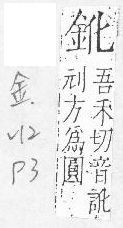 鈋
吾禾切音訛
刓方為圓
金.
V12
P3